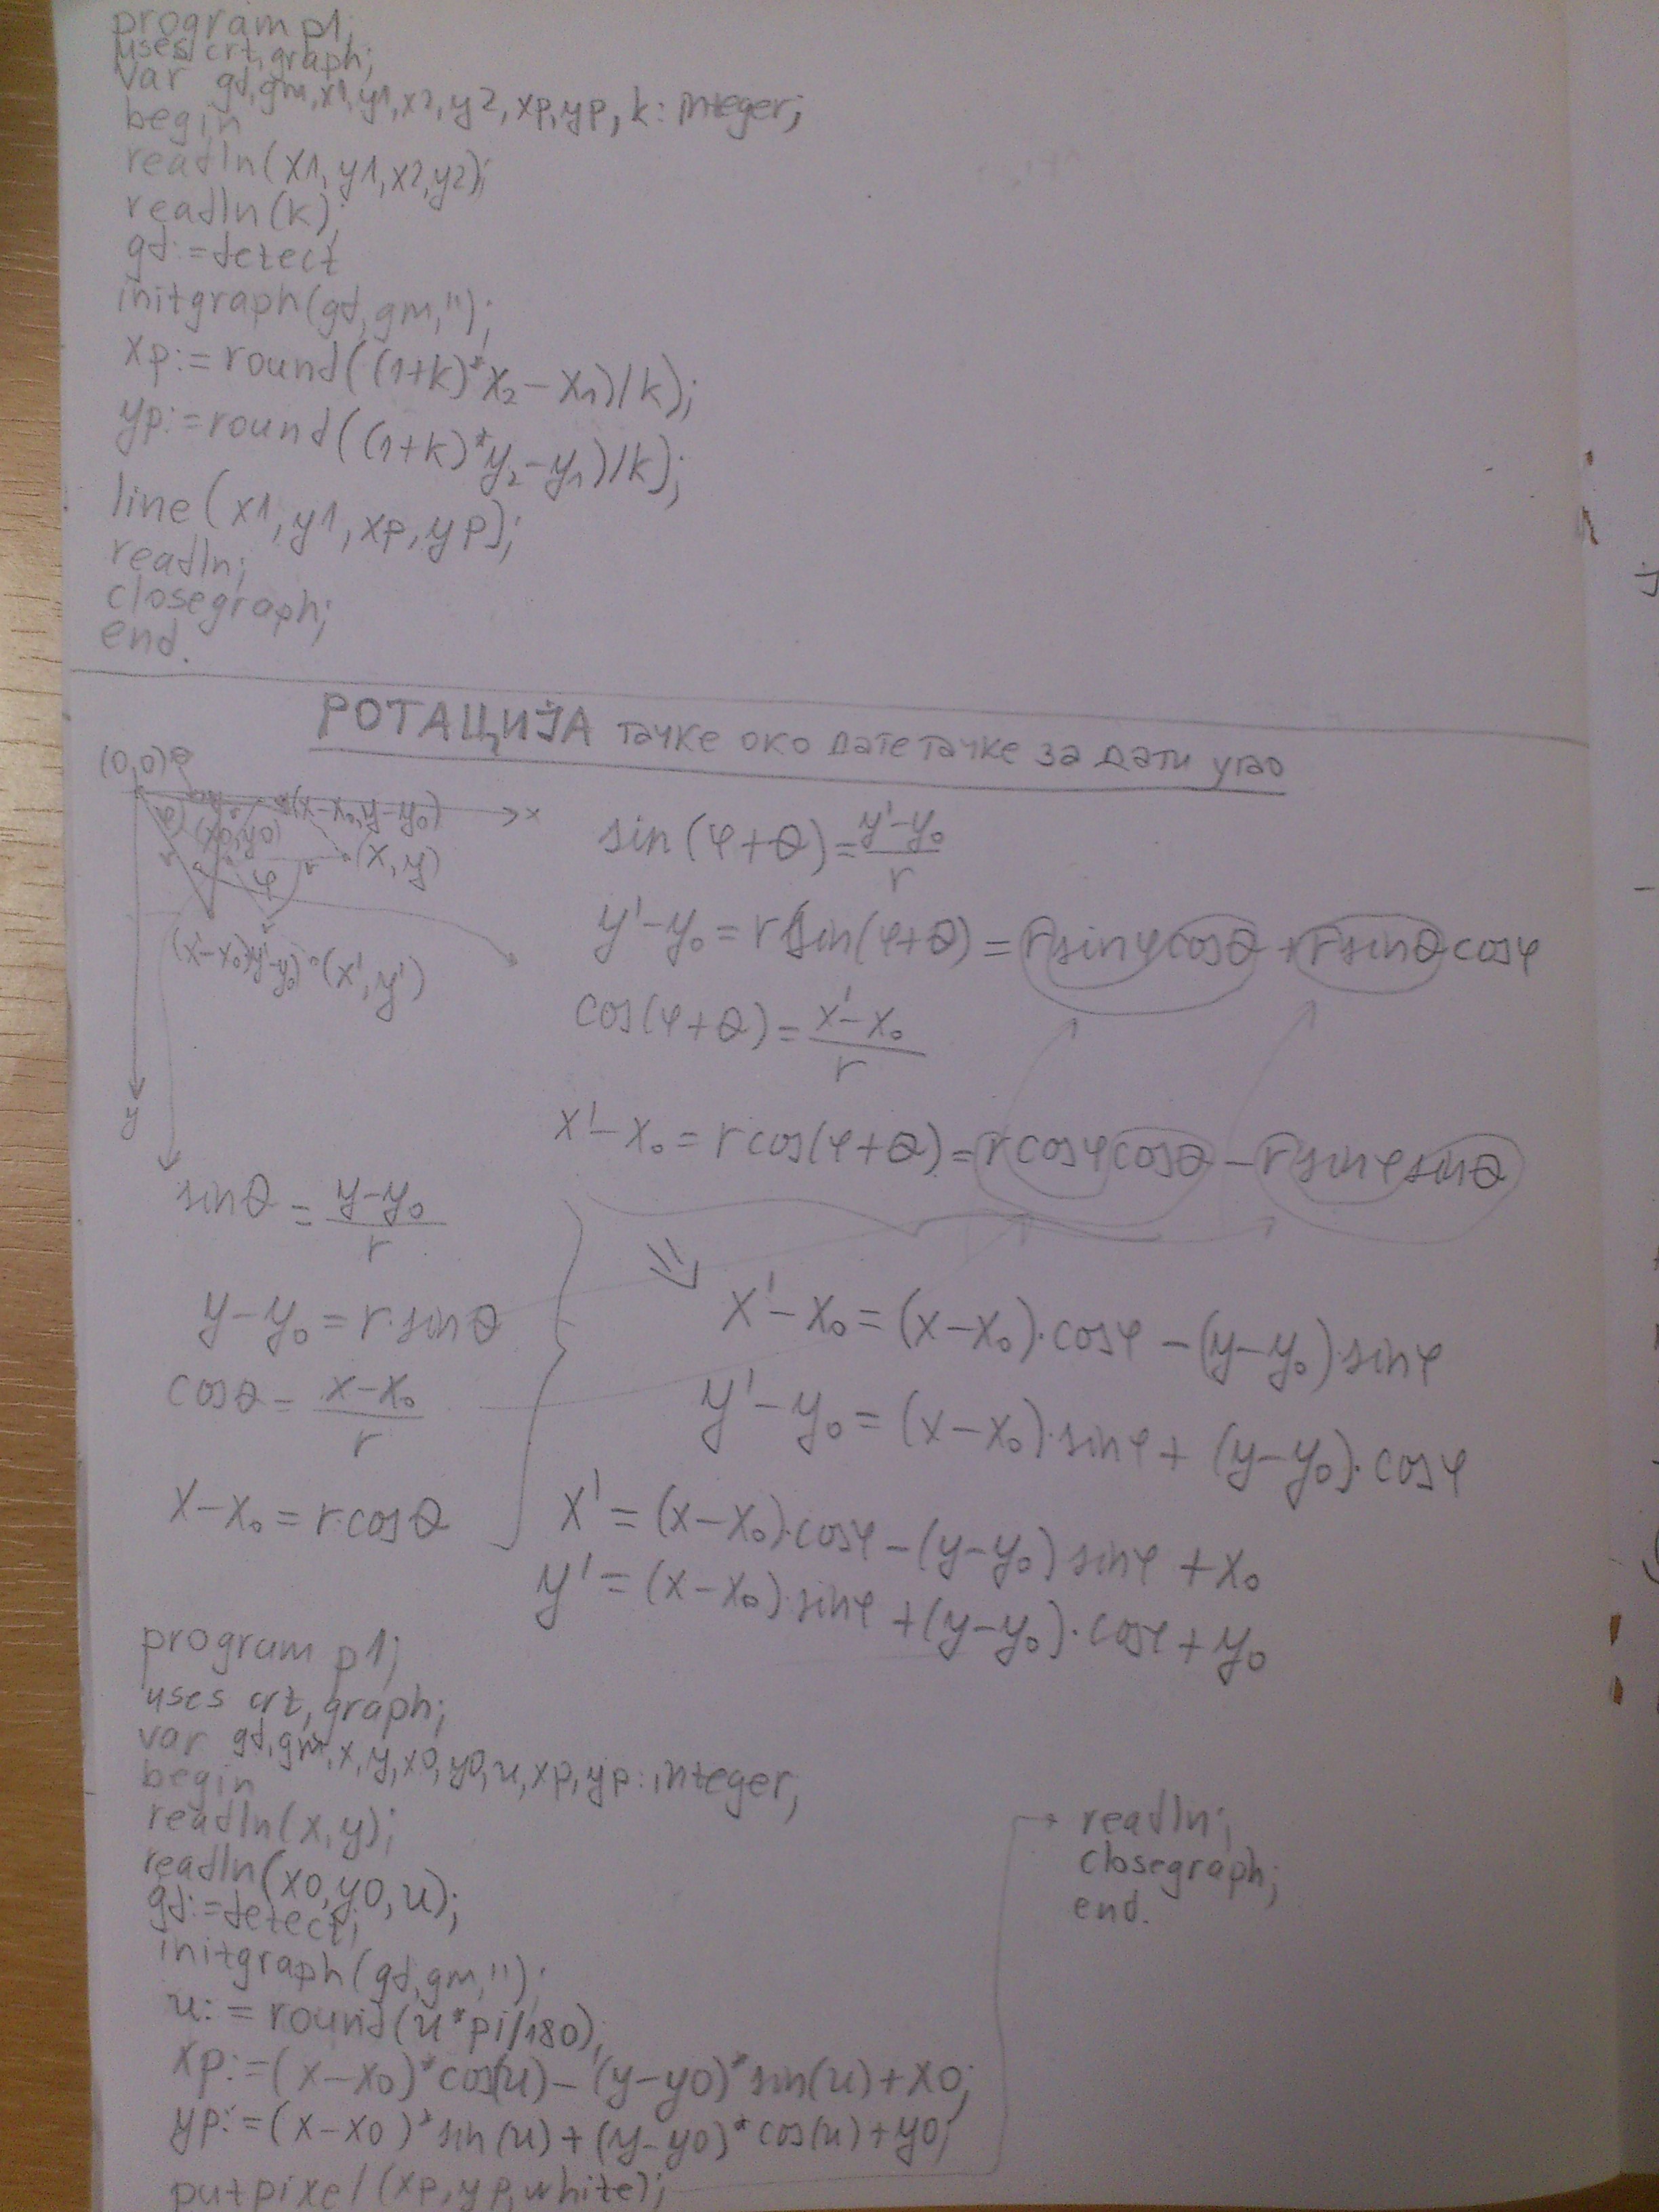 program p1;
uses crt, graph;
var gd, gm, x1, y1, x2, y2, xp, yp, k: integer;
begin
readln(x1, y1, x2, y2);
readln(k);
gd:=detect
initgraph(gd, gm, '');
xp:=round((1+k)*x₂-x₁)/k);
yp:=round((1+k)*y₂-y₁)/k);
line(x1, y1, xp, yp);
readln;
closegraph;
end.
РОТАЦИЈА тачке око дате тачке за дати угао
(0,0) θ
x
(x-x₀, y-y₀)
(x0, y0)
(x, y)
φ
r
(x'-x₀, y'-y₀)
(x', y')
y
sin(φ+θ)=(y'-y₀)/r
y'-y₀=r sin(φ+θ)=r sinφ cosθ + r sinθ cosφ
cos(φ+θ)=(x'-x₀)/r
x'-x₀=r cos(φ+θ)=r cosφ cosθ - r sinφ sinθ
sinθ=(y-y₀)/r
y-y₀=r·sinθ
cosθ=(x-x₀)/r
x-x₀=r·cosθ
⇒
x'-x₀=(x-x₀)·cosφ-(y-y₀)·sinφ
y'-y₀=(x-x₀)·sinφ+(y-y₀)·cosφ
x'=(x-x₀)·cosφ-(y-y₀) sinφ+x₀
y'=(x-x₀)·sinφ+(y-y₀)·cosφ+y₀
program p1;
uses crt, graph;
var gd, gm, x, y, x0, y0, u, xp, yp: integer;
begin
readln(x, y);
readln(x0, y0, u);
gd:=detect;
initgraph(gd, gm, '');
u:=round(u*pi/180);
xp:=(x-x0)*cos(u)-(y-y0)*sin(u)+x0;
yp:=(x-x0)*sin(u)+(y-y0)*cos(u)+y0;
putpixel(xp, yp, white);
readln;
closegraph;
end.